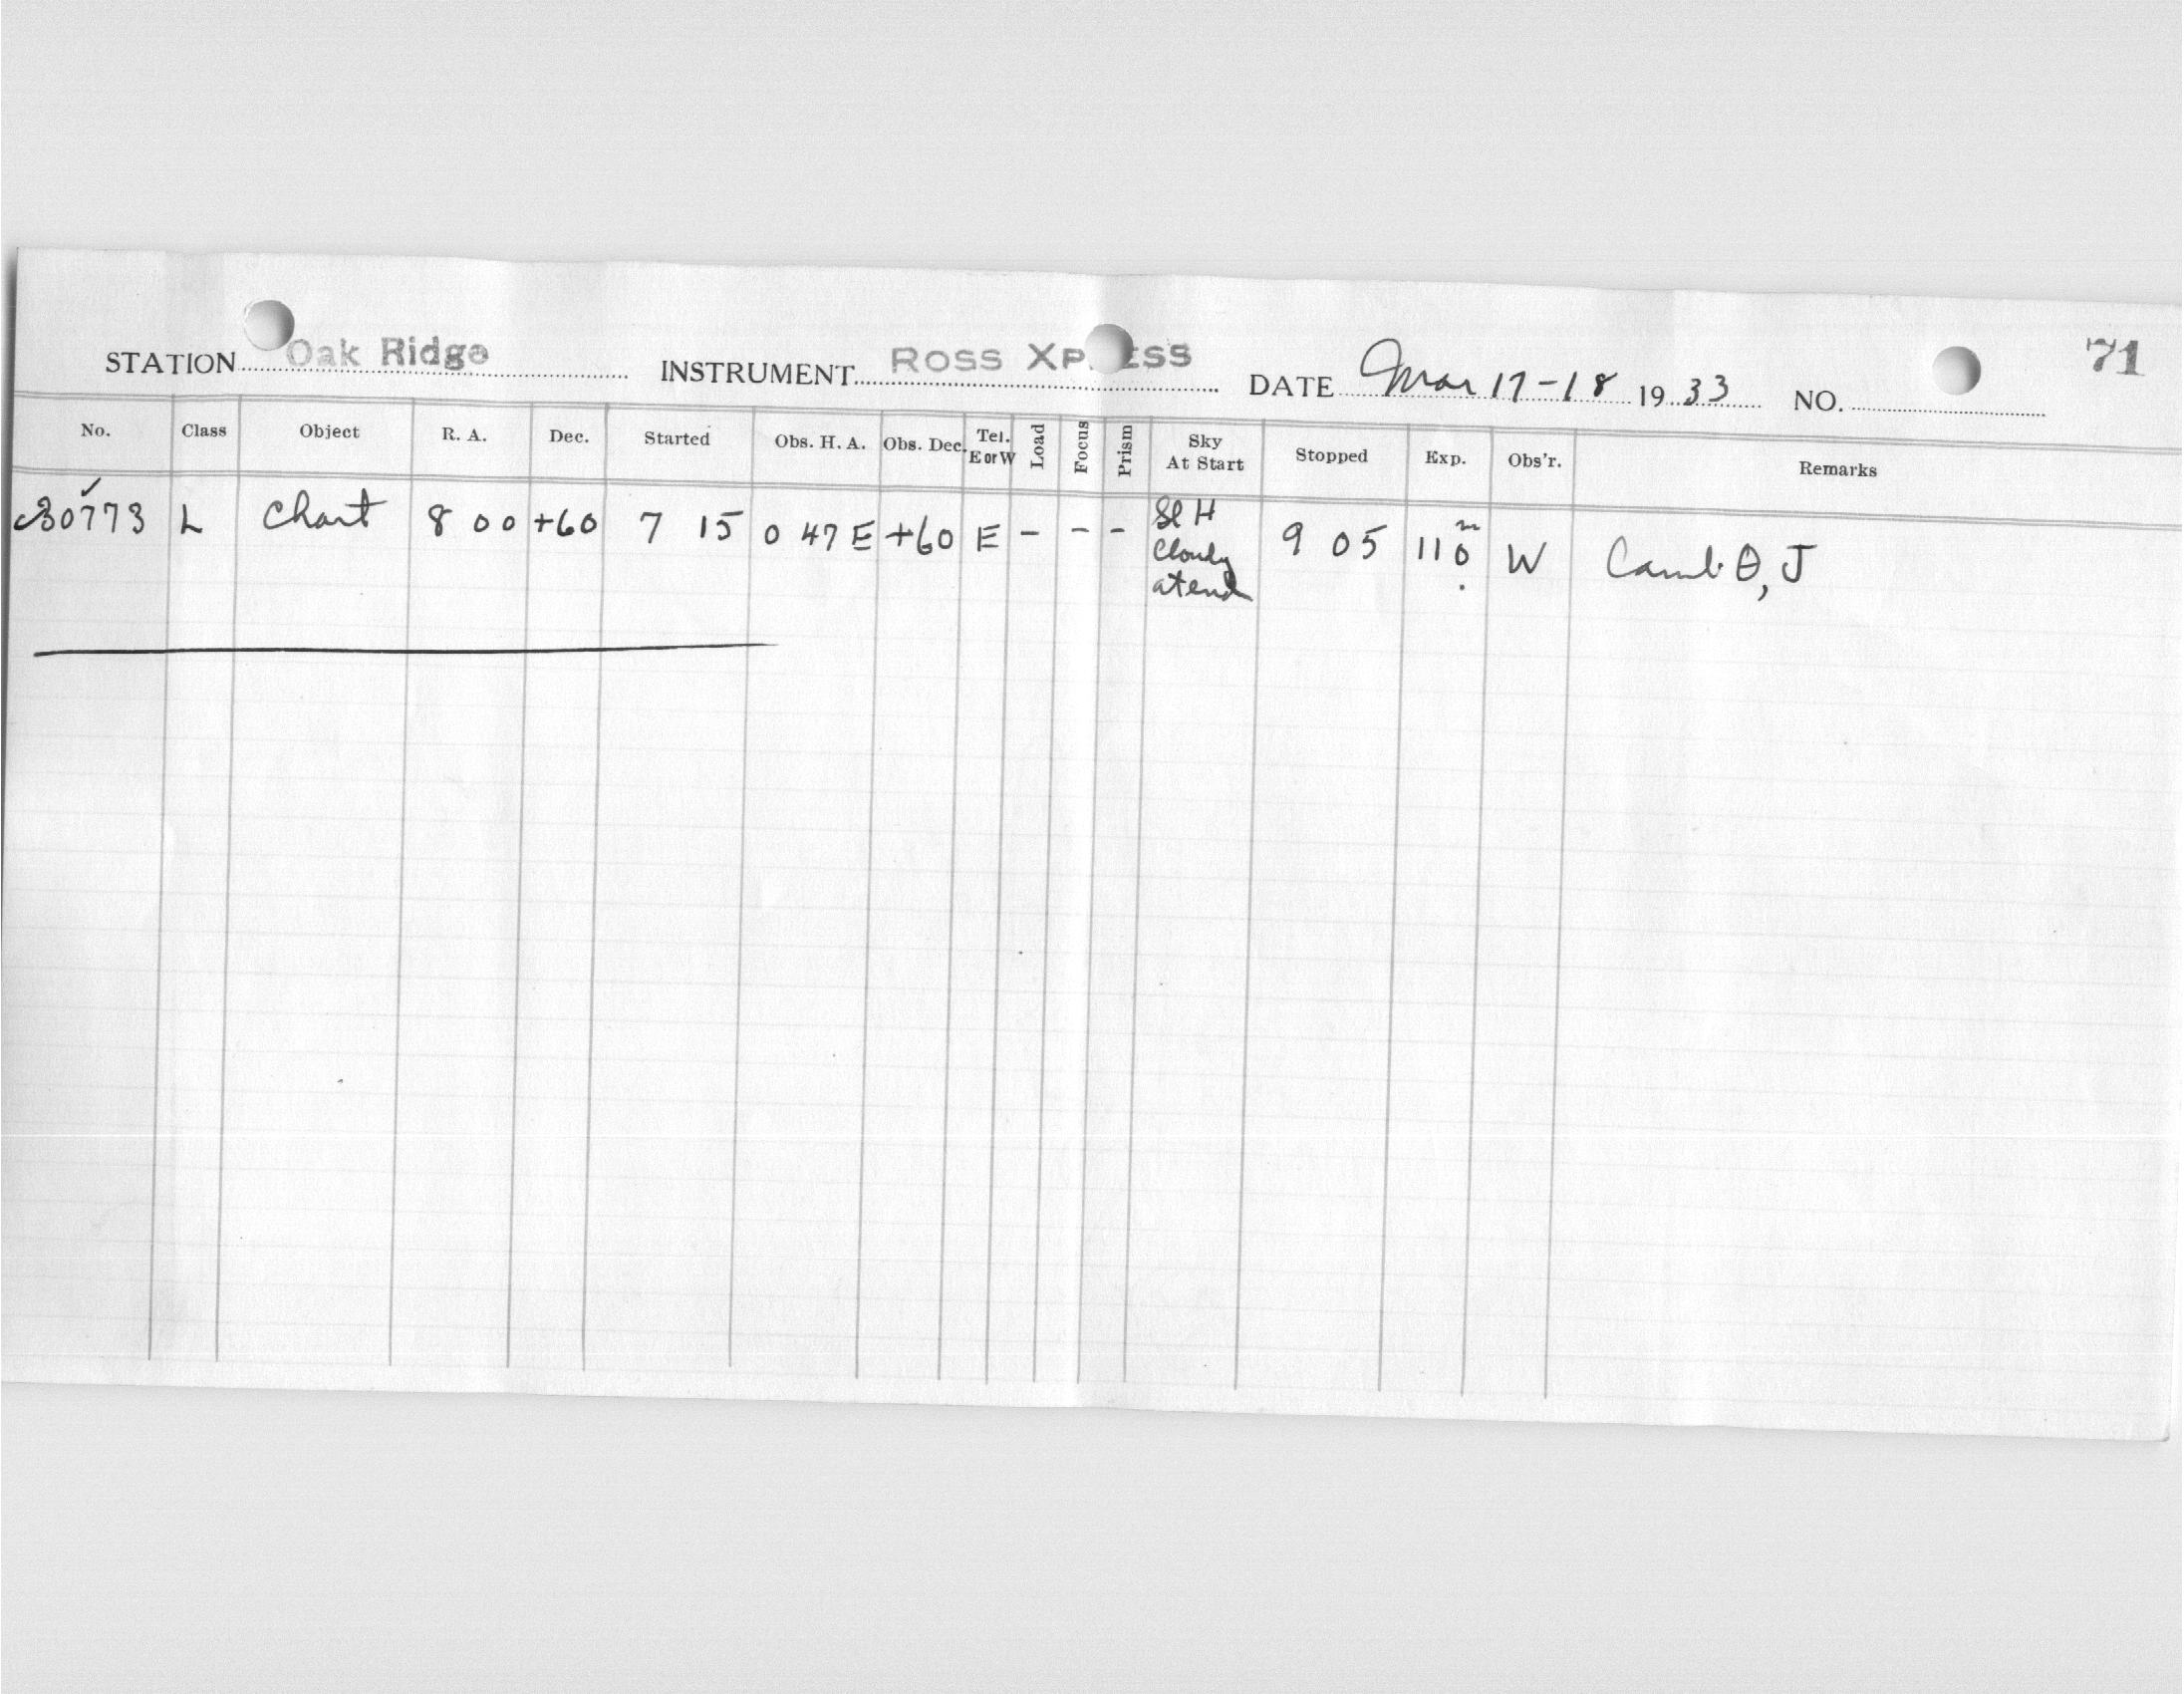 STATION Oak Ridge INSTRUMENT ROSS XPRESS DATE Mar 17-18 1933 NO. 71
No. Class Object R. A. Dec. Started Obs. H. A. Obs. Dec. Tel. E or W Load Focus Prism Sky At Start Stopped Exp. Obs'r. Remarks
c30773 ✓ L Chart 8 00 +60 7 15 0 47 E +60 E - - - Sl H Cloudy at end 9 05 110 m W Camb. θ, J